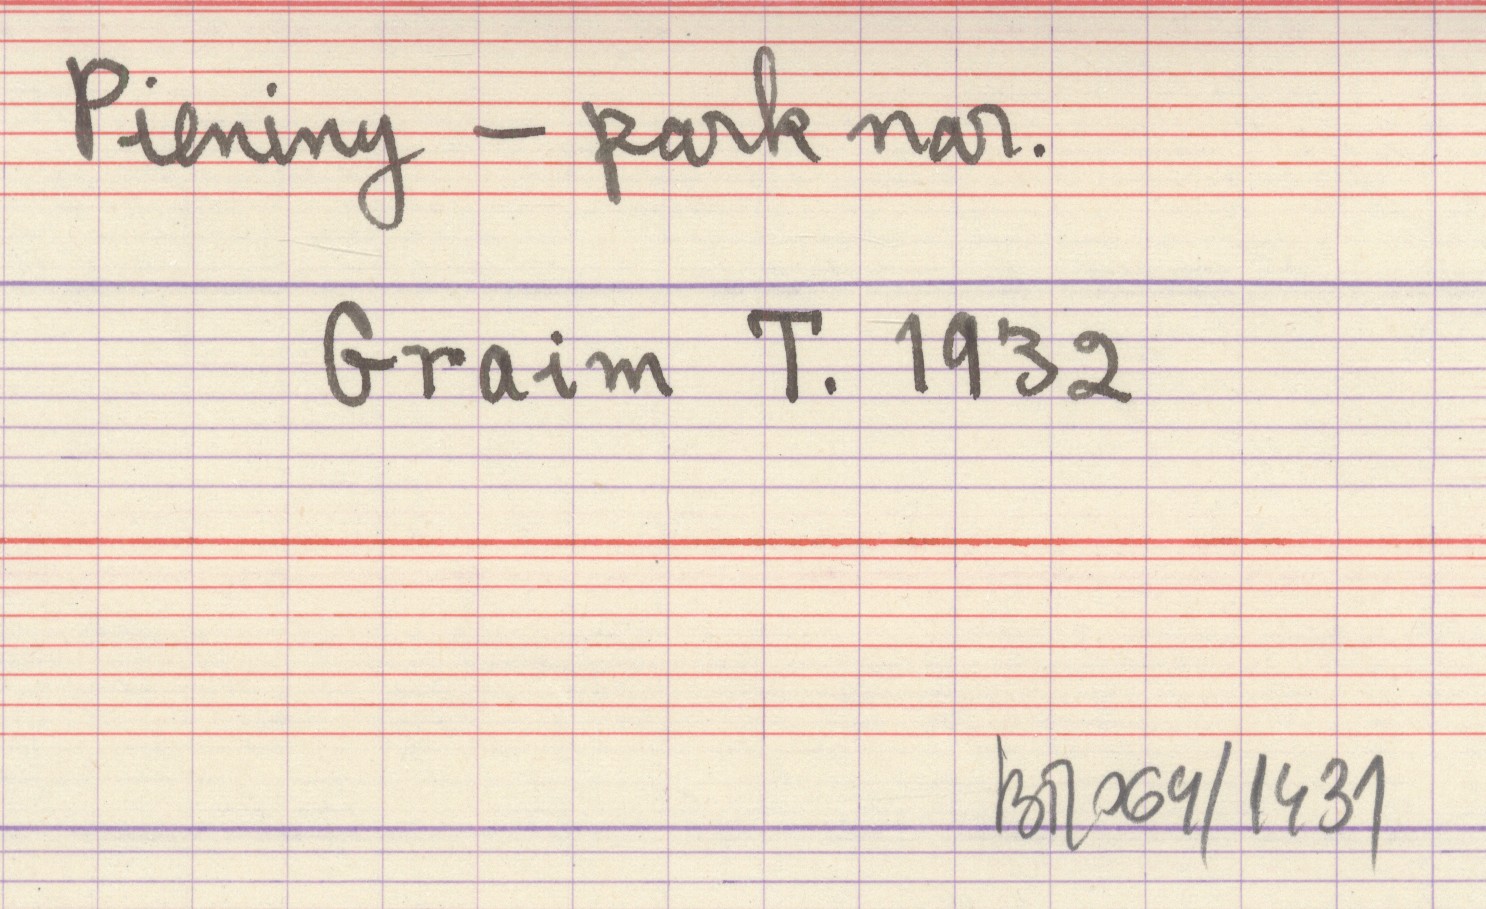 Pieniny – park nar.
Graim T. 1932
/1431